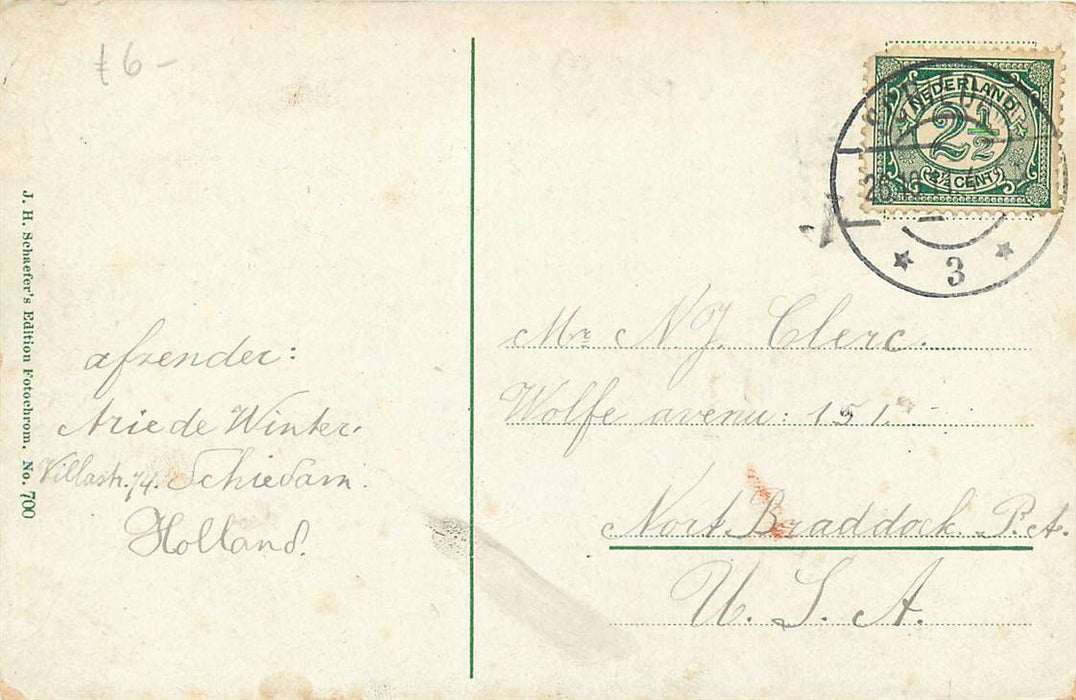 ƒ 6 -
J. H. Schaefer's Edition Fotochrom. No. 700
afzender:
Arie de Winter.
Villastr. 74. Schiedam.
Holland.
NEDERLAND
2½
2½ CENT
3
Mr. N. J. Clerc.
Wolfe avenu: 151.
Nort. Braddock. P.A.
U. S. A.